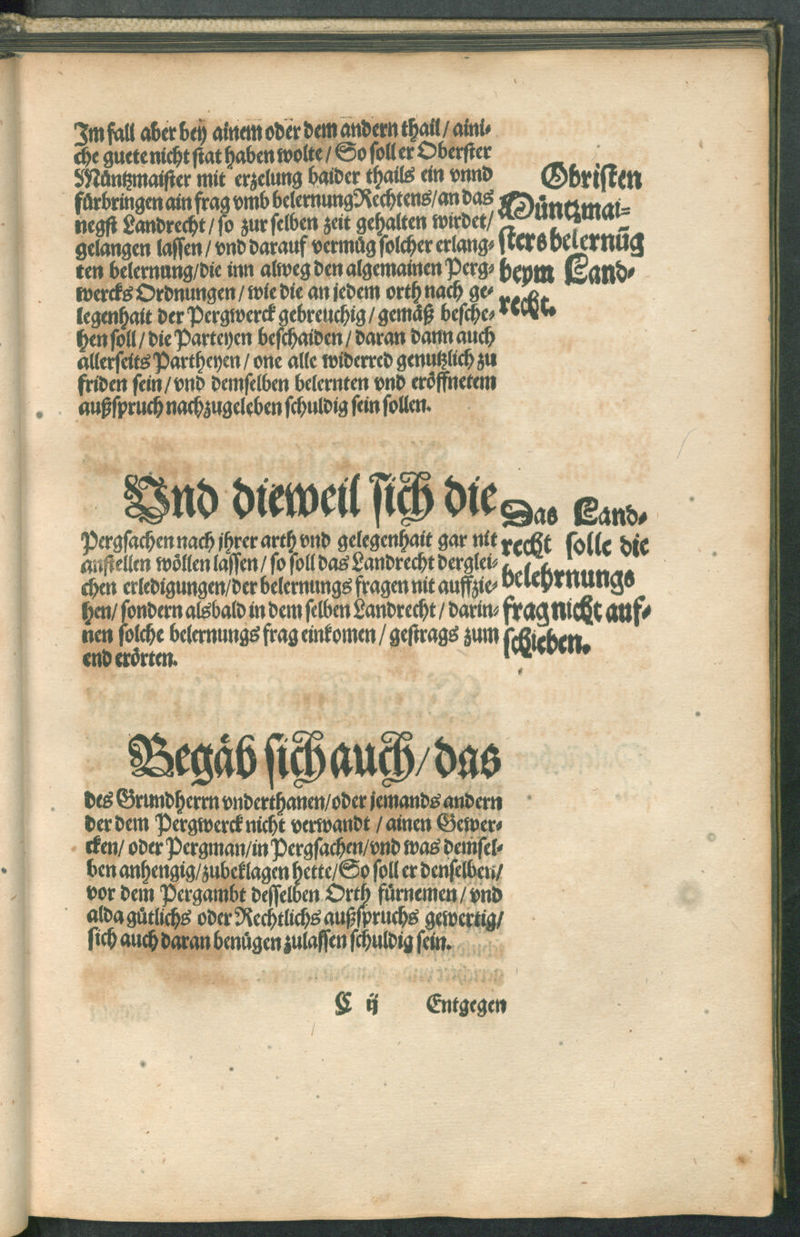 Im fall aber bey ainem oder dem andern thail / aini-
che guete nicht stat haben wolte / So soll er Oberster
Müntzmaister mit erzelung baider thails ein vnnd
fürbringen ain frag vmb belernung Rechtens / an das
negst Landrecht / so zur selben zeit gehalten wirdet /
gelangen lassen / vnd darauf vermüg solcher erlang-
ten belernung / die inn alweg den algemainen Perg-
wercks Ordnungen / wie die an jedem orth nach ge-
legenhait der Pergwerck gebreuchig / gemäß besche-
hen soll / die Parteyen beschaiden / daran dann auch
allerseits Partheyen / one alle widerred genutzlich zu
friden sein / vnd demselben belernten vnd eröffnetem
außspruch nachzugeleben schuldig sein sollen.
Obristen
Müntzmai-
sters belernũg
beym Land-
recht.
Vnd dieweil sich die
Pergsachen nach jhrer arth vnd gelegenhait gar nit
anstellen wöllen lassen / so soll das Landrecht derglei-
chen erledigungen / der belernungs fragen nit auffzie-
hen / sondern alsbald in dem selben Landrecht / darin-
nen solche belernungs frag einkomen / gestrags zum
end erörten.
Das Land-
recht solle die
belehrnungs
frag nicht auf-
schieben.
Begäb sich auch / das
des Grundherrn vnderthanen / oder jemands andern
der dem Pergwerck nicht verwandt / ainen Gewer-
cken / oder Pergman / in Pergsachen / vnd was demsel-
ben anhengig / zubeklagen hette / So soll er denselben /
vor dem Pergambt desselben Orth fürnemen / vnd
alda gütlichs oder Rechtlichs außspruchs gewertig /
sich auch daran benügen zulassen schuldig sein.
C ij Entgegen